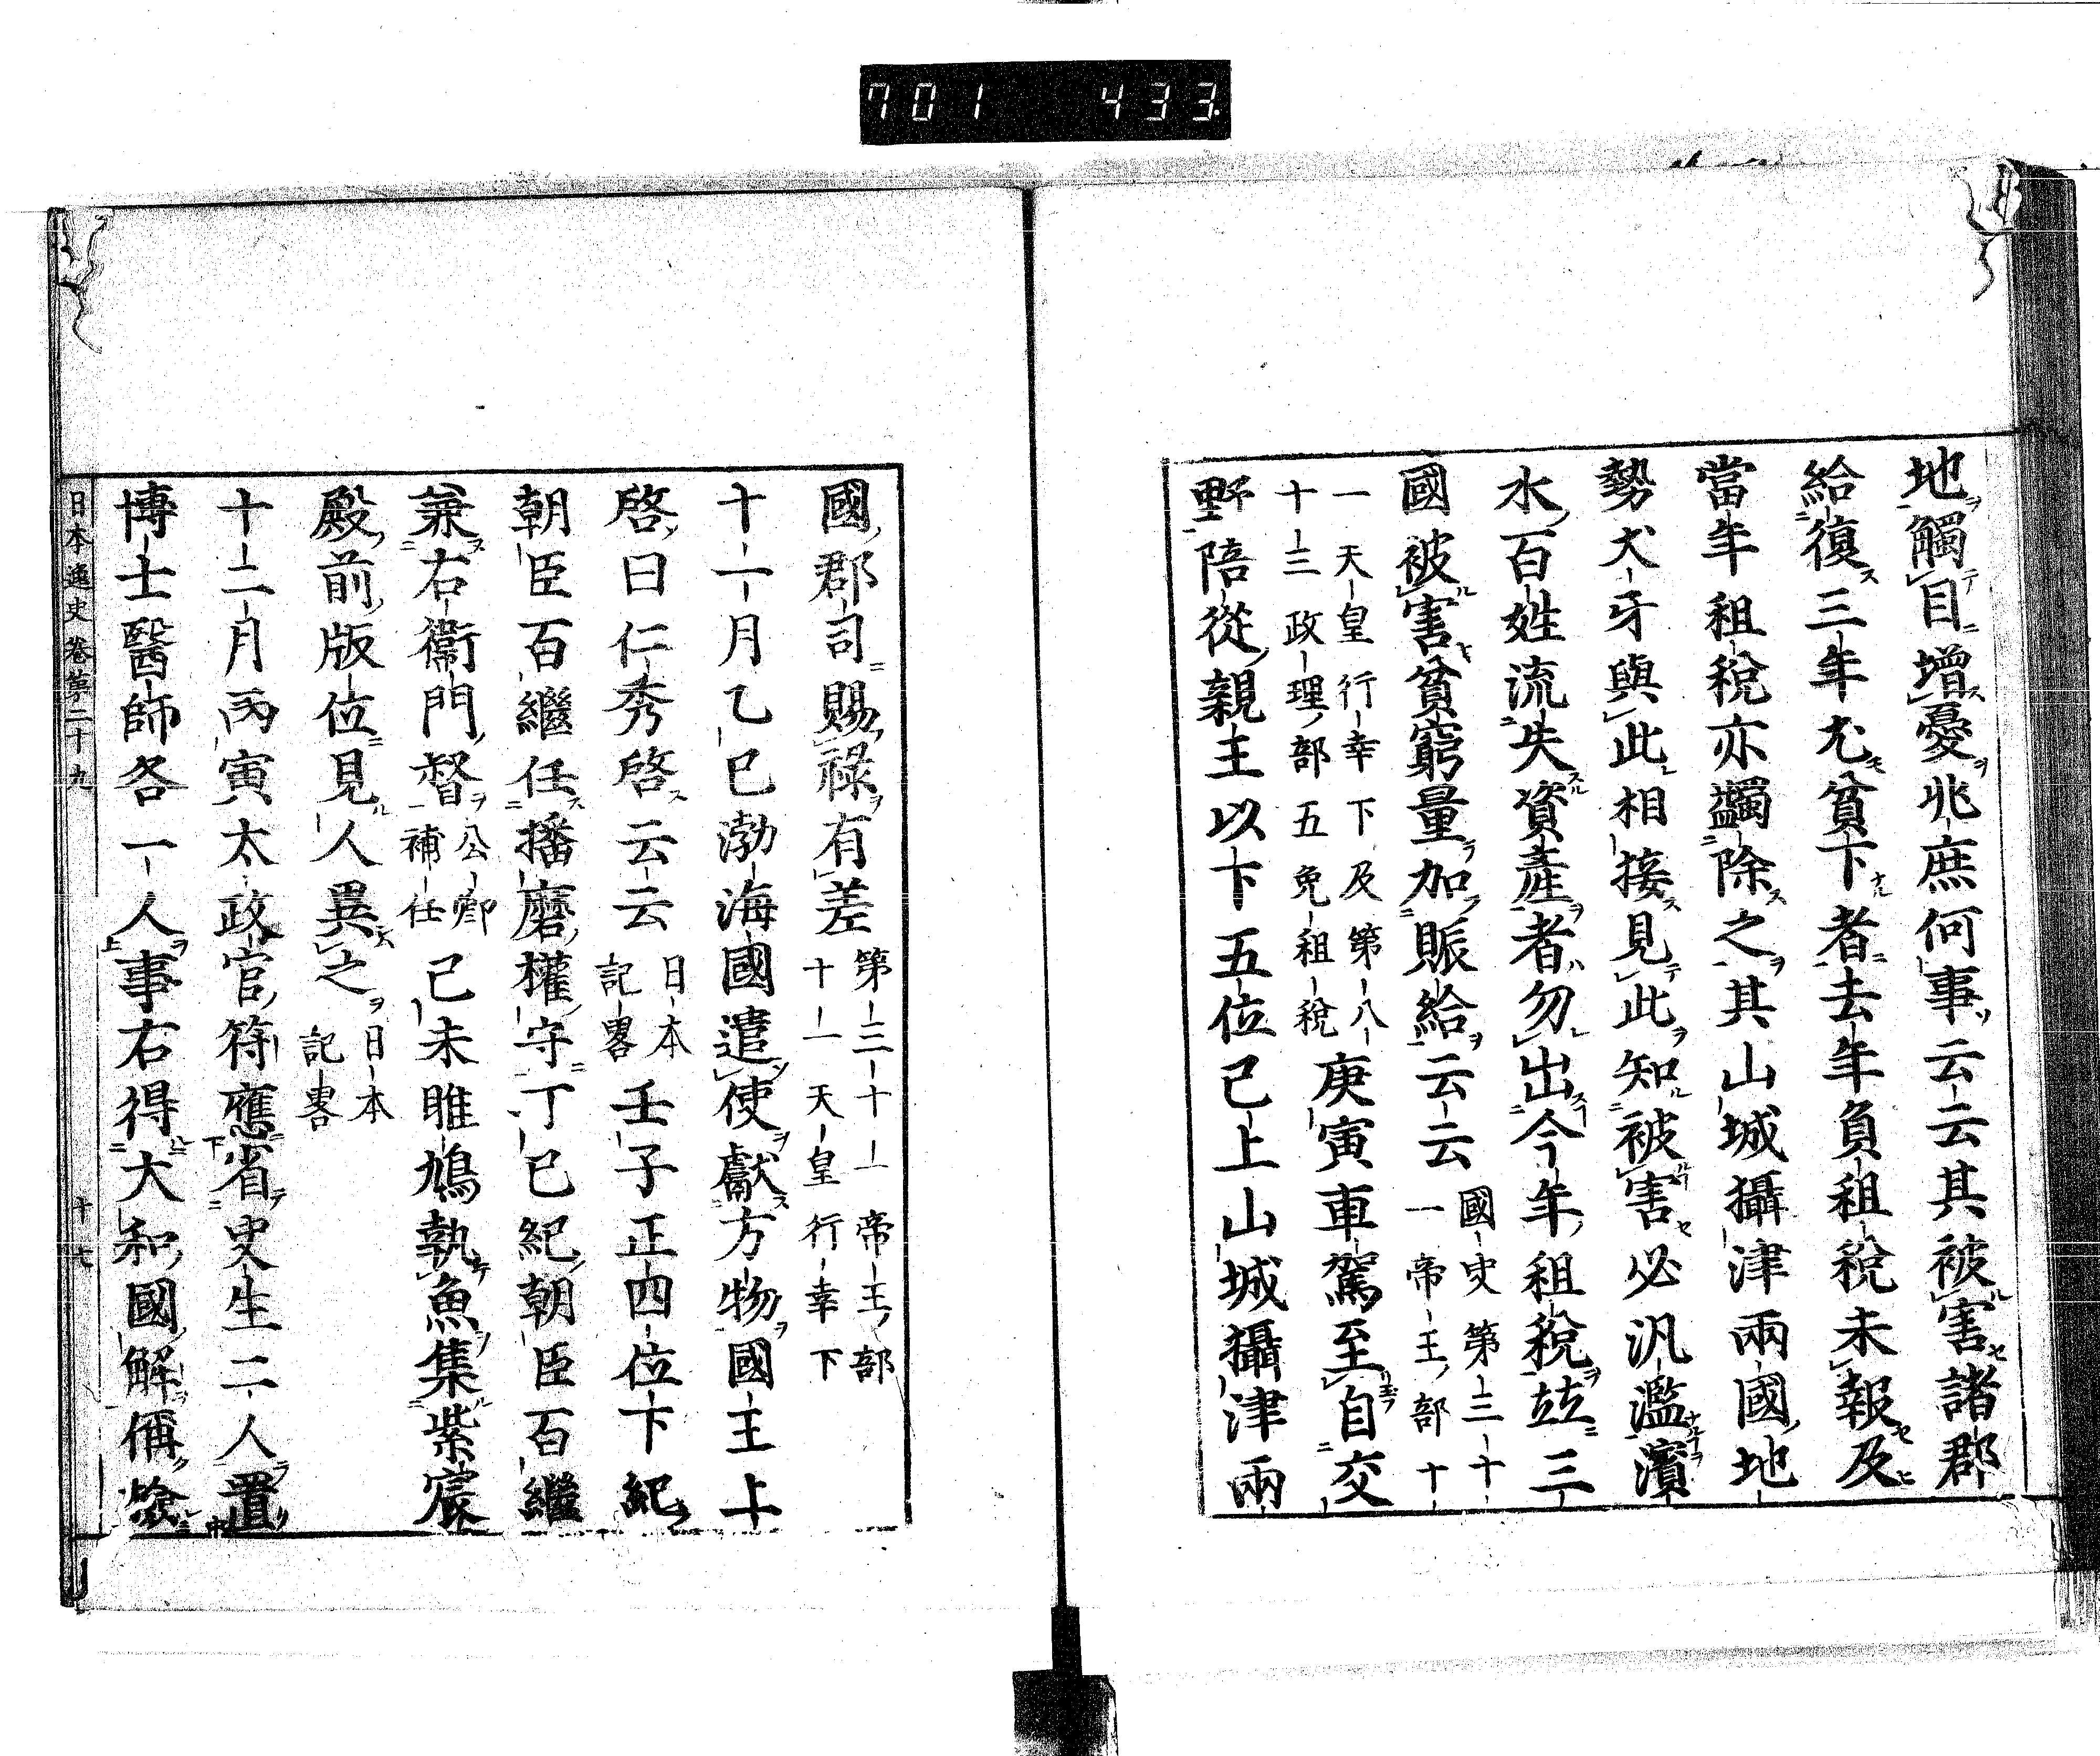 701 433
地觸目增憂兆庶何事云云其被害諸郡
給復三年尤貧下者去年負租稅未報及
當年租稅亦蠲除之其山城攝津兩國地
勢犬牙與此相接見此知被害必汎濫濱
水百姓流失資產者勿出今年租稅竝三
國被害貧窮量加賑給云云國史第三十
一帝王部十
一天皇行幸下及第八
十三政理部五免租稅庚寅車駕至自交
野陪從親王以下五位已上山城攝津兩
國郡司賜祿有差第三十一帝王部
十一天皇行幸下
十一月乙巳渤海國遣使獻方物國王上
啓曰仁秀啓云云日本
記畧壬子正四位下紀
朝臣百繼任播磨權守丁巳紀朝臣百繼
兼右衞門督公卿
補任己未雎鳩執魚集紫宸
殿前版位見人異之日本
記畧
十二月丙寅太政官符應省史生二人置
博士醫師各一人事右得大和國解偁
日本逸史卷第二十九
十七